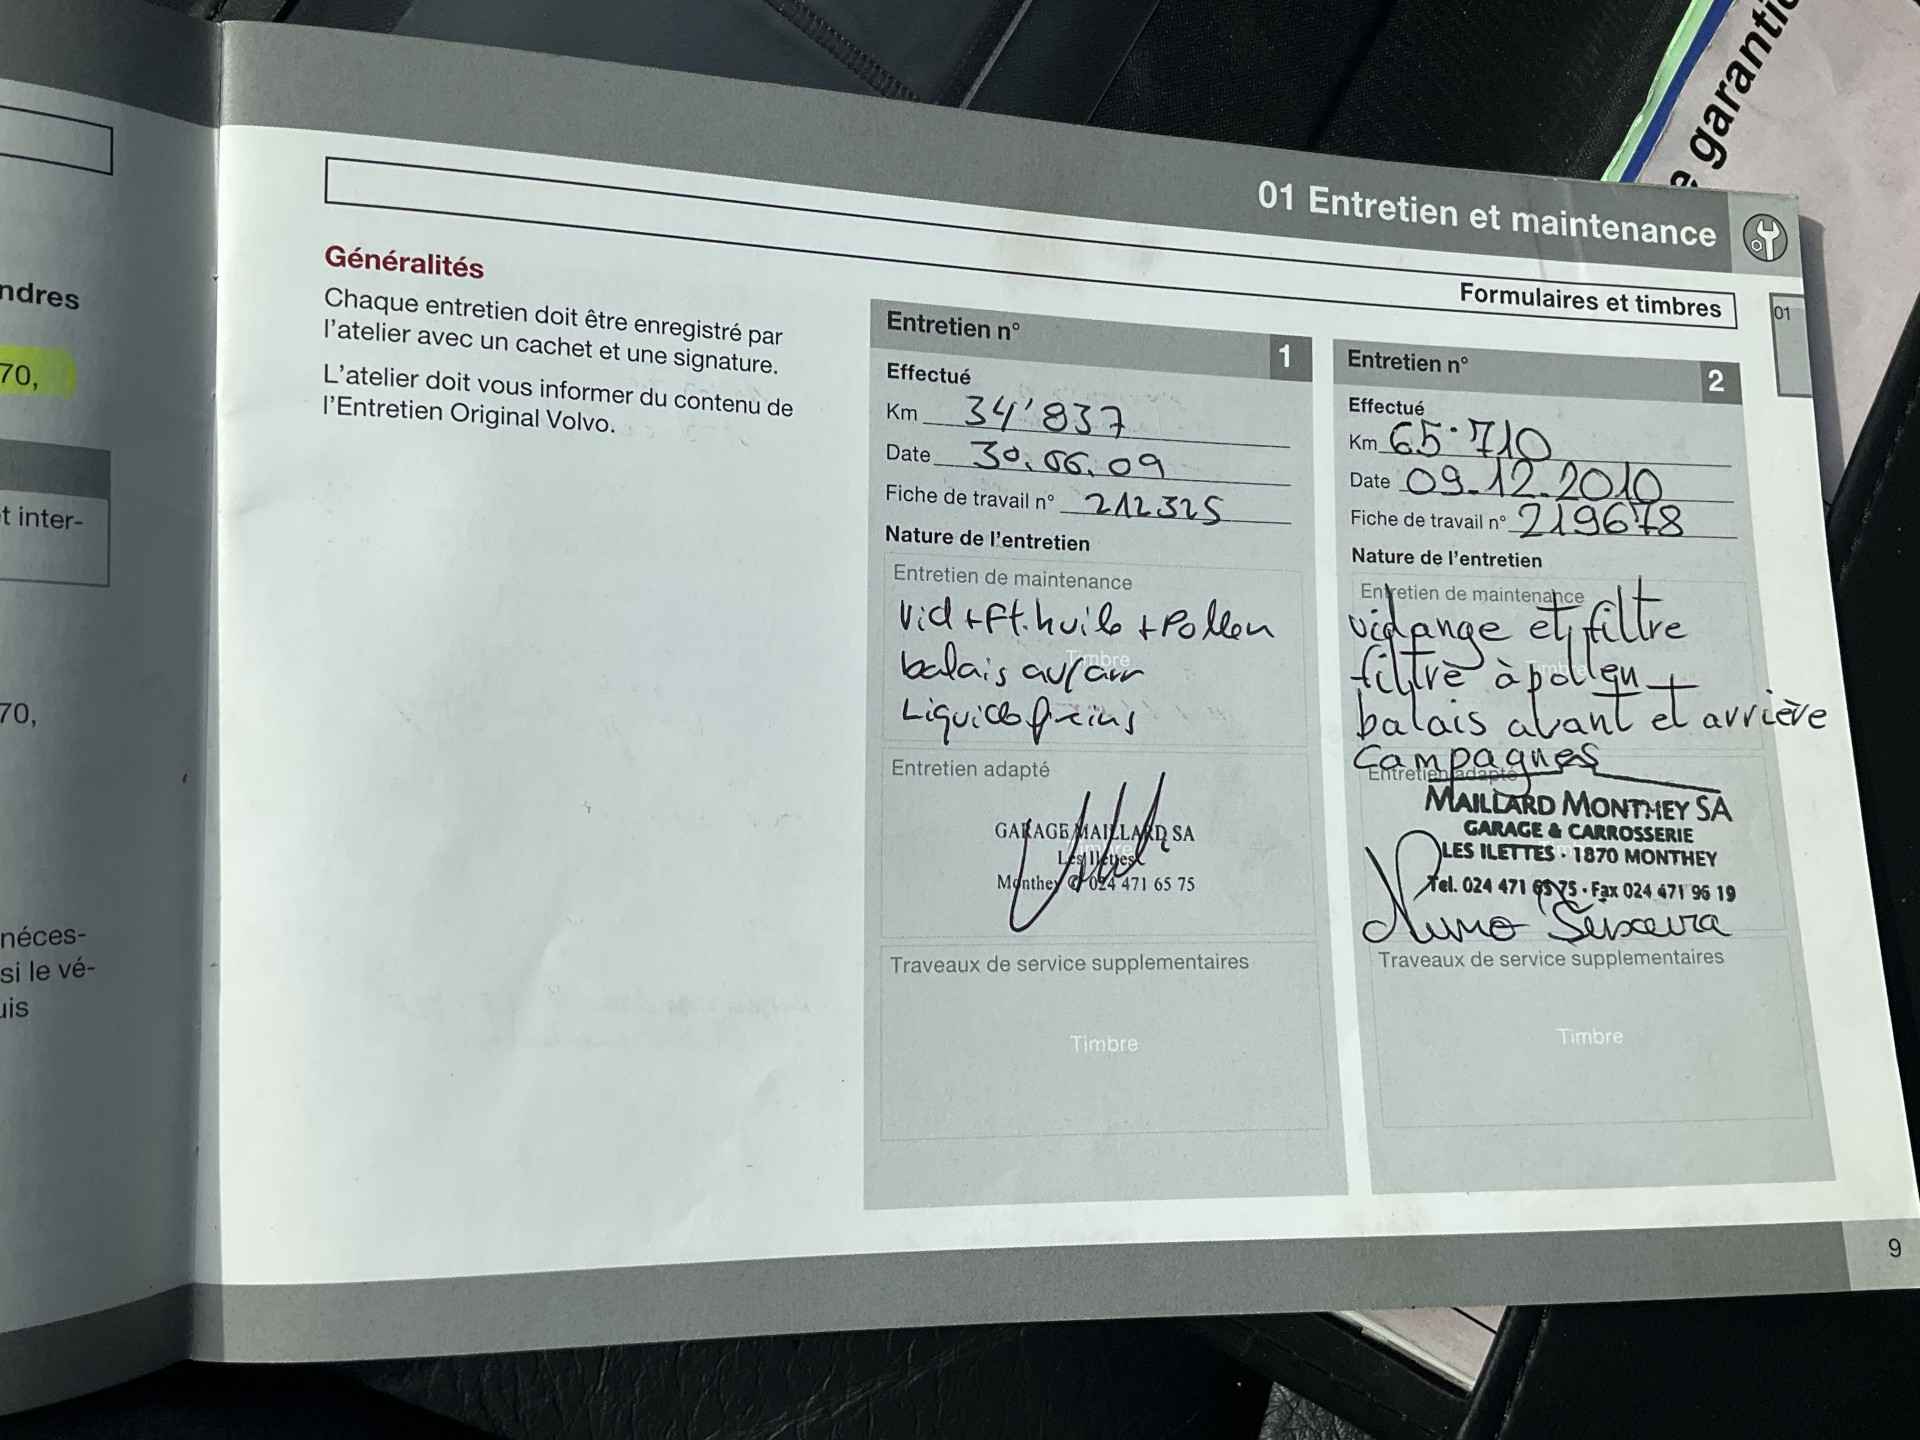 ndres
70,
t inter-
70,
néces-
si le vé-
uis
e garantie
01 Entretien et maintenance
Formulaires et timbres
01
Généralités
Chaque entretien doit être enregistré par
l'atelier avec un cachet et une signature.
L'atelier doit vous informer du contenu de
l'Entretien Original Volvo.
Entretien n°
1
Effectué
Km 34'837
Date 30.06.09
Fiche de travail n° 212325
Nature de l'entretien
Entretien de maintenance
Vid + Ft. huile + Pollen
Timbre
balais av/arr
Liquide freins
Entretien adapté
GARAGE MAILLARD SA
Timbre
Les Ilettes
Monthey ✆ 024 471 65 75
Traveaux de service supplementaires
Timbre
Entretien n°
2
Effectué
Km 65.710
Date 09.12.2010
Fiche de travail n° 219678
Nature de l'entretien
Entretien de maintenance
vidange et filtre
Timbre
filtre à pollen
balais avant et arrière
campagnes
Entretien adapté
MAILLARD MONTHEY SA
GARAGE & CARROSSERIE
LES ILETTES · 1870 MONTHEY
Tel. 024 471 65 75 · Fax 024 471 96 19
Nuno
Traveaux de service supplementaires
Timbre
9